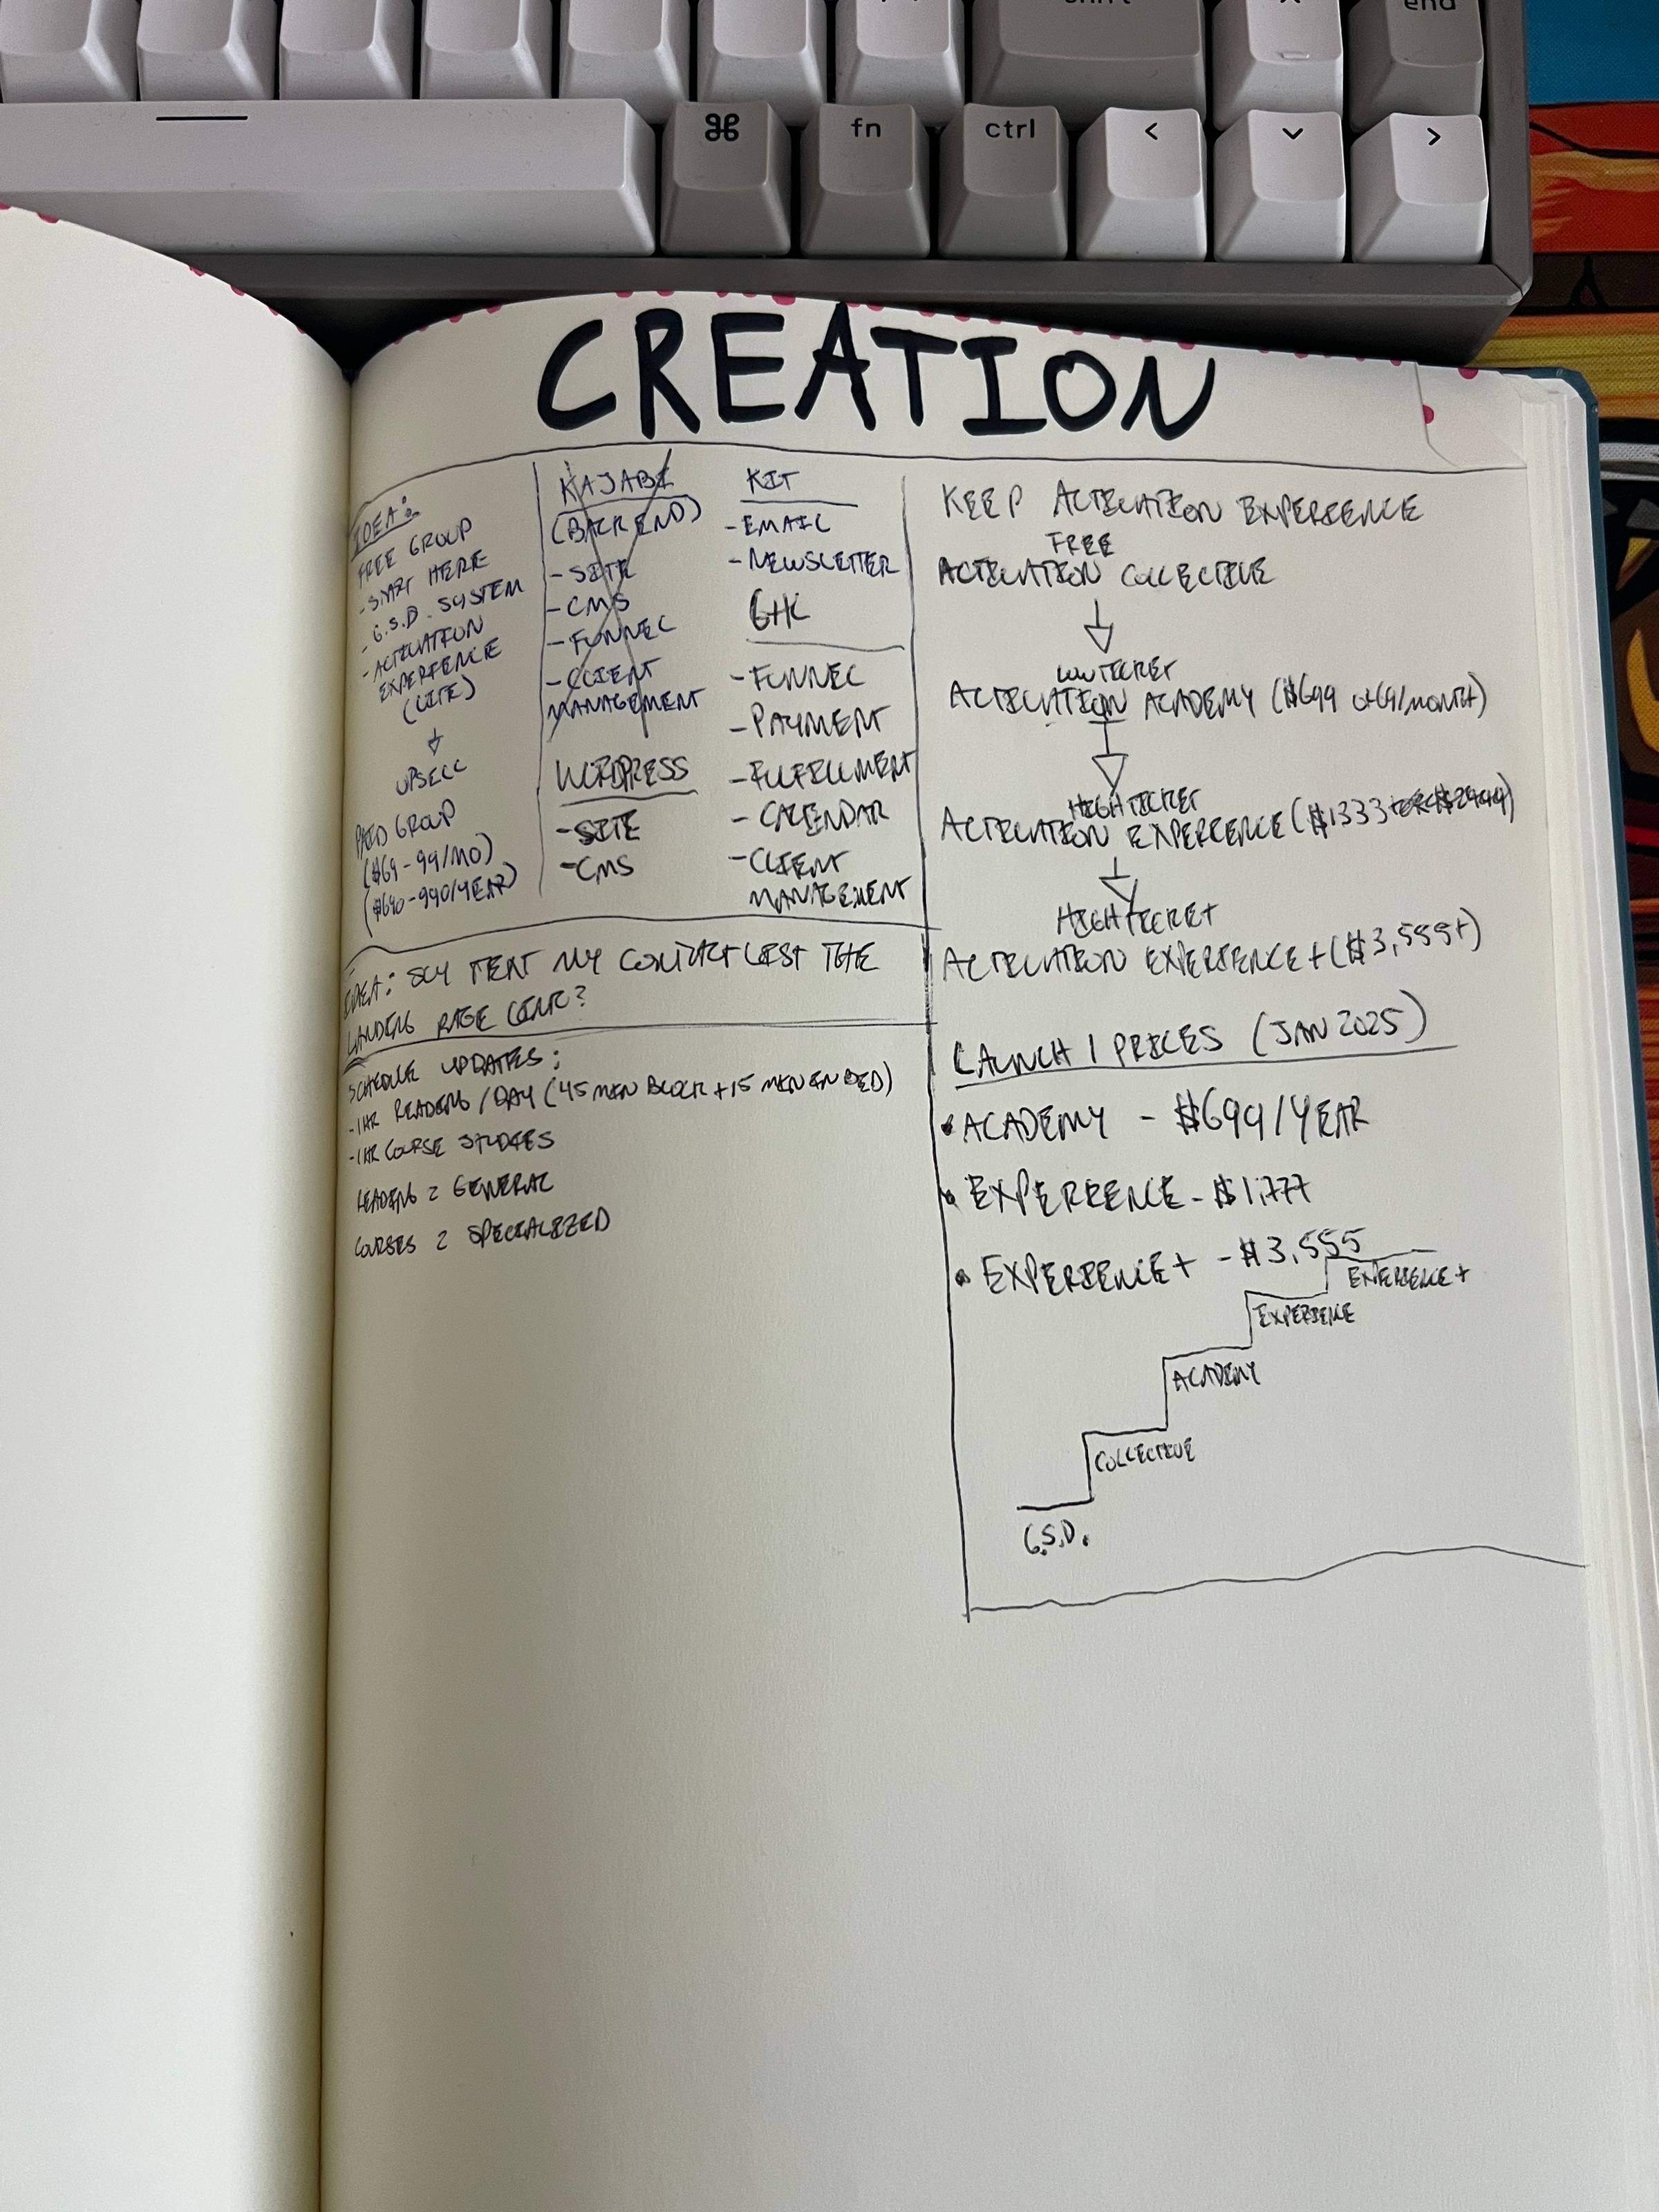 shift
end
⌘
fn
ctrl
<
>
CREATION
IDEA:
FREE GROUP
- START HERE
- G.S.D. SYSTEM
- ACTIVATION
EXPERIENCE
(LITE)
UPSELL
PAID GROUP
($69-99/MO)
($690-990/YEAR)
KAJABI
(BACKEND)
- SITE
- CMS
- FUNNEL
- CLIENT
MANAGEMENT
WORDPRESS
- SITE
- CMS
KIT
- EMAIL
- NEWSLETTER
GHL
- FUNNEL
- PAYMENT
- FULFILLMENT
- CALENDAR
- CLIENT
MANAGEMENT
IDEA: SLY TEXT MY CONTACT LIST THE
LANDING PAGE LINK?
SCHEDULE UPDATES:
- 1HR READING/DAY (45 MIN BLOCK + 15 MIN IN BED)
- 1HR COURSE STUDIES
READING = GENERAL
COURSES = SPECIALIZED
KEEP ACTIVATION EXPERIENCE
FREE
ACTIVATION COLLECTIVE
LOW TICKET
ACTIVATION ACADEMY ($699 69/MONTH)
HIGH TICKET
ACTIVATION EXPERIENCE ($1333 $2999)
HIGH TICKET
ACTIVATION EXPERIENCE + ($3,555+)
LAUNCH 1 PRICES (JAN 2025)
• ACADEMY - $699/YEAR
• EXPERIENCE - $1,777
• EXPERIENCE+ - $3,555
EXPERIENCE +
EXPERIENCE
ACADEMY
COLLECTIVE
G.S.D.